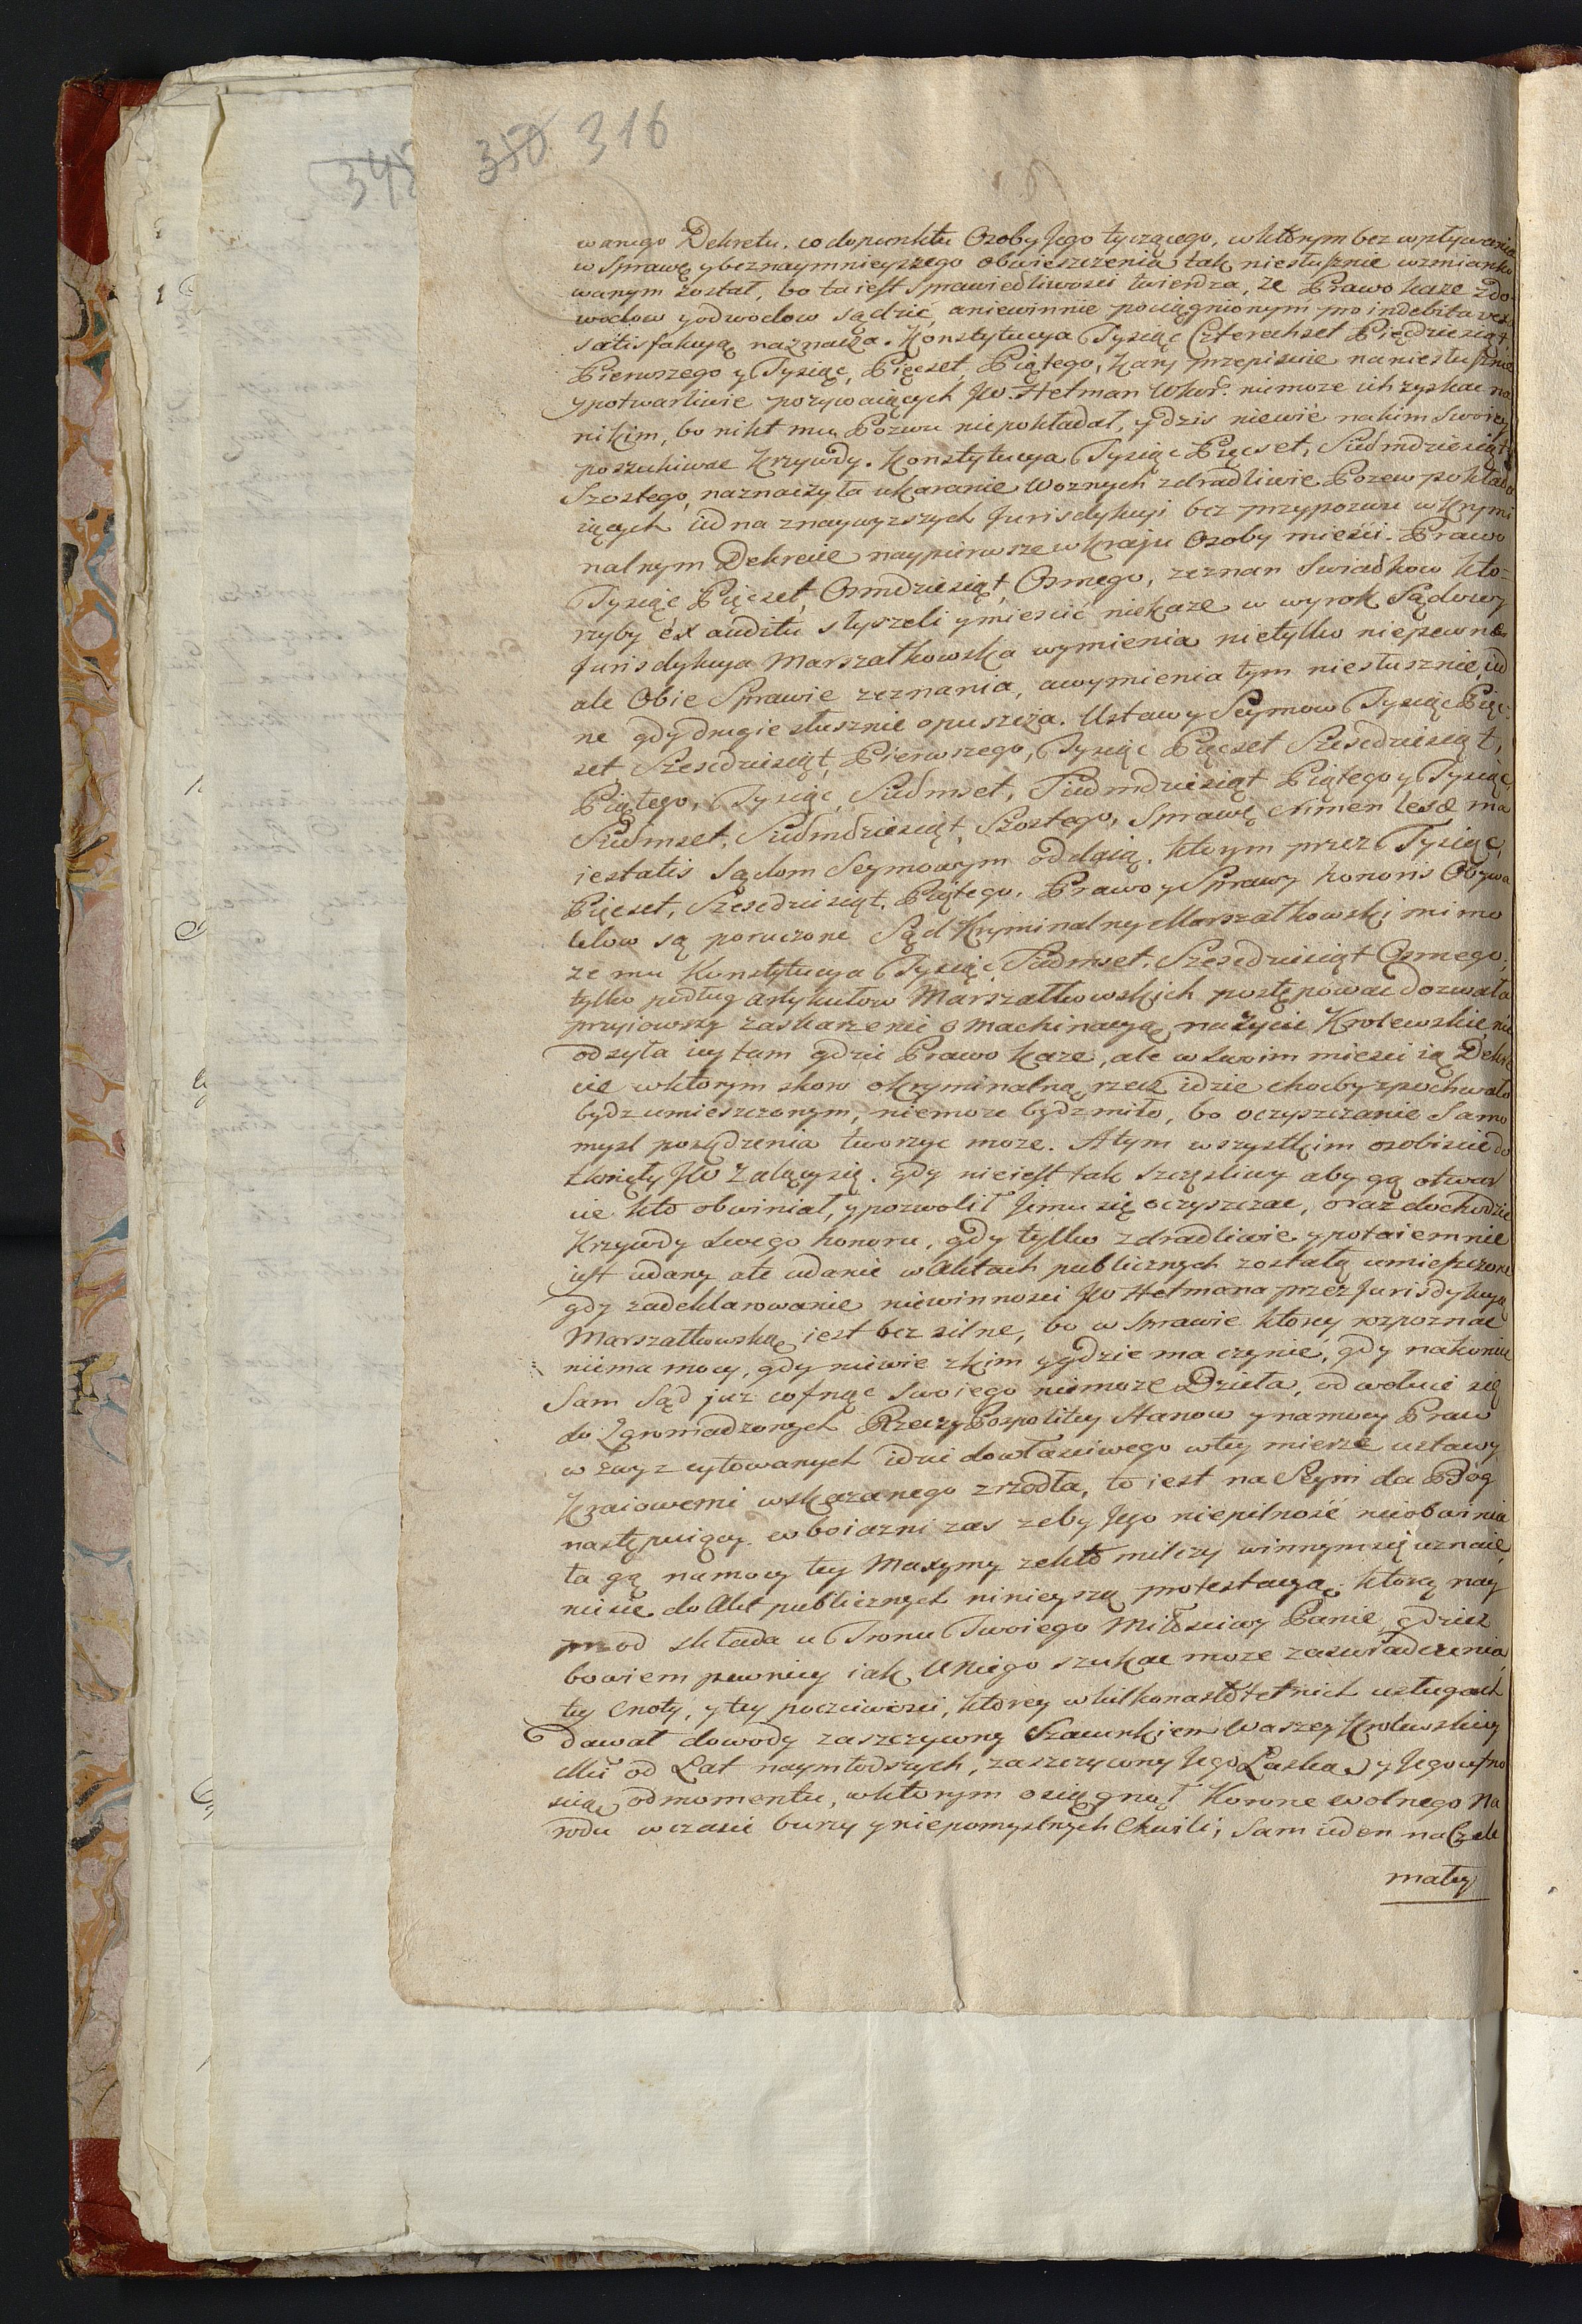 350 316
348
wanego Dekretu. co do punktu Osoby Jego tyczącego, w którym bez wpływania
w Sprawę y bez naymnieyszego obwieszczenia tak niesłusznie wzmianko
wanym został, bo ta iest Sprawiedliwości twierdza, że Prawo każe z do
wodow y odwodow sądzić, a niewinnie pociągnionym pro indebita vexa
satisfakcyą naznacza. Konstytucya Tysiąc Czterechset Pięćdziesiąt
Pierwszego y Tysiąc, Pięcset Piątego, kary przepisuie na niesłusznie
y potwarliwie pozywaiących JW. Hetman WKor. nie może ich zyskac na
nikim, bo nikt mu Pozwu nie pokładał, y dzis niewié na kim swoiey
poszukiwac Krzywdy. Konstytucya Tysiąc Pięcset, Siedmdziesiąt
Szostego, naznaczyła ukaranie Woznych zdradliwie Pozew pokłada
iących iedna z naywyzszych Jurisdykcyi bez przypozwu w Krymi
nalnym Dekrecie naypierwsze w Kraju Osoby mieści. Prawo
Tysiąc Pięcset, Osmdziesiąt, Osmego, zeznan Swiadkow kto=
rzyby ex auditu słyszeli y miescić niekaze w wyrok Sądowy
Jurisdykcya Marszałkowska wymienia nietylko niepewne
ale Obie Sprawie zeznania, a wymienia tym niesłusznie, ied
ne gdy drugie słusznie opuszcza. Ustawy Seymow Tysiąc Pięc=
set, Szescdziesiąt, Pierwszego, Tysiąc Pięcset Szescdziesiąt,
Piątego, Tysiąc, Siedmset, Siedmdziesiąt Piątego y Tysiąc,
Siedmset, Siedmdziesiąt, Szostego, Sprawę Crimen lesæ ma
iestatis Sądom Seymowym oddaią. ktorym przez Tysiąc,
Pięcset, Szescdziesiąt, Piątego, Prawo y Sprawy honoris Obywa
telow są poruczone Sąd Kryminalny Marszałkowski mimo
ze mu Konstytucya Tysiąc, Siedmset, Szescdziesiąt Osmego,
tylko podług Artykułow Marszałkowskich postępowac dozwala
przyiowszy zaskarzenie o machinacyą na życie Krolewskie nie
odsyła iey tam gdzie Prawo kaze, ale w swoim miesci ią Dekre
cie w ktorym skoro o kryminalną rzecz idzie chocby z pochwało
bydz umieszczonym, niemoze bydz miło, bo oczyszczanie Samo
mysl posądzenia tworzyc moze. A tym wszystkim osobiscie do
tknięty JW Zalący się. gdy nie iest tak szczęsliwy aby gą otwar
cie kto obwiniał, y pozwolił Jemu się oczyszczac, oraz dochodzic
Krzywdy swego honoru, gdy tylko zdradliwie y potaiemnie
iest udany ale udanie w Aktach publicznych zostało umieszczone
gdy zadeklarowanie niewinnosci JW Hetmana przez Jurisdykcyą
Marszałkowską iest bez silne, bo w Sprawie ktorey rozpoznac
niema mocy, gdy niewie z kim y gdzie ma czynic, gdy nakoniec
Sam Sąd juz cofnąc swoiego niemoze Dzieła, odwołuie się
do Zgromadzonych Rzeczy Pospolitey Stanow y na mocy Praw
w zwyz cytowanych idzie do własciwego w tey mierze ustawy
Kraiowemi wskazanego zrzodła, to iest na Seym da Bóg
następuiący. w boiazni zas zeby Jego niepilność nieobwinia
ła gą na mocy tey Maxymy ze kto milczy winnym się uznaie,
niesie do Akt publicznych ninieyszą protestacyą, ktorą nay
przod składa u Tronu Twoiego Miłosciwy Panie, gdziez
bowiem pewniey iak u Niego szukac moze zaswiadczenia
tey Cnoty, y tey poczciwosci, ktorey w kilkonastoletnich usługach
dawał dowody zaszczycony Szacunkiem Waszey Krolewskiey
Mci od Lat naymłodszych, zaszczycony Jego Łaska y Jego ufno
scią od momentu, w ktorym osiągnął Korone wolnego Na
rodu w czasie burzy y niepomyslnych Chwili, Sam ieden na Czele
małey